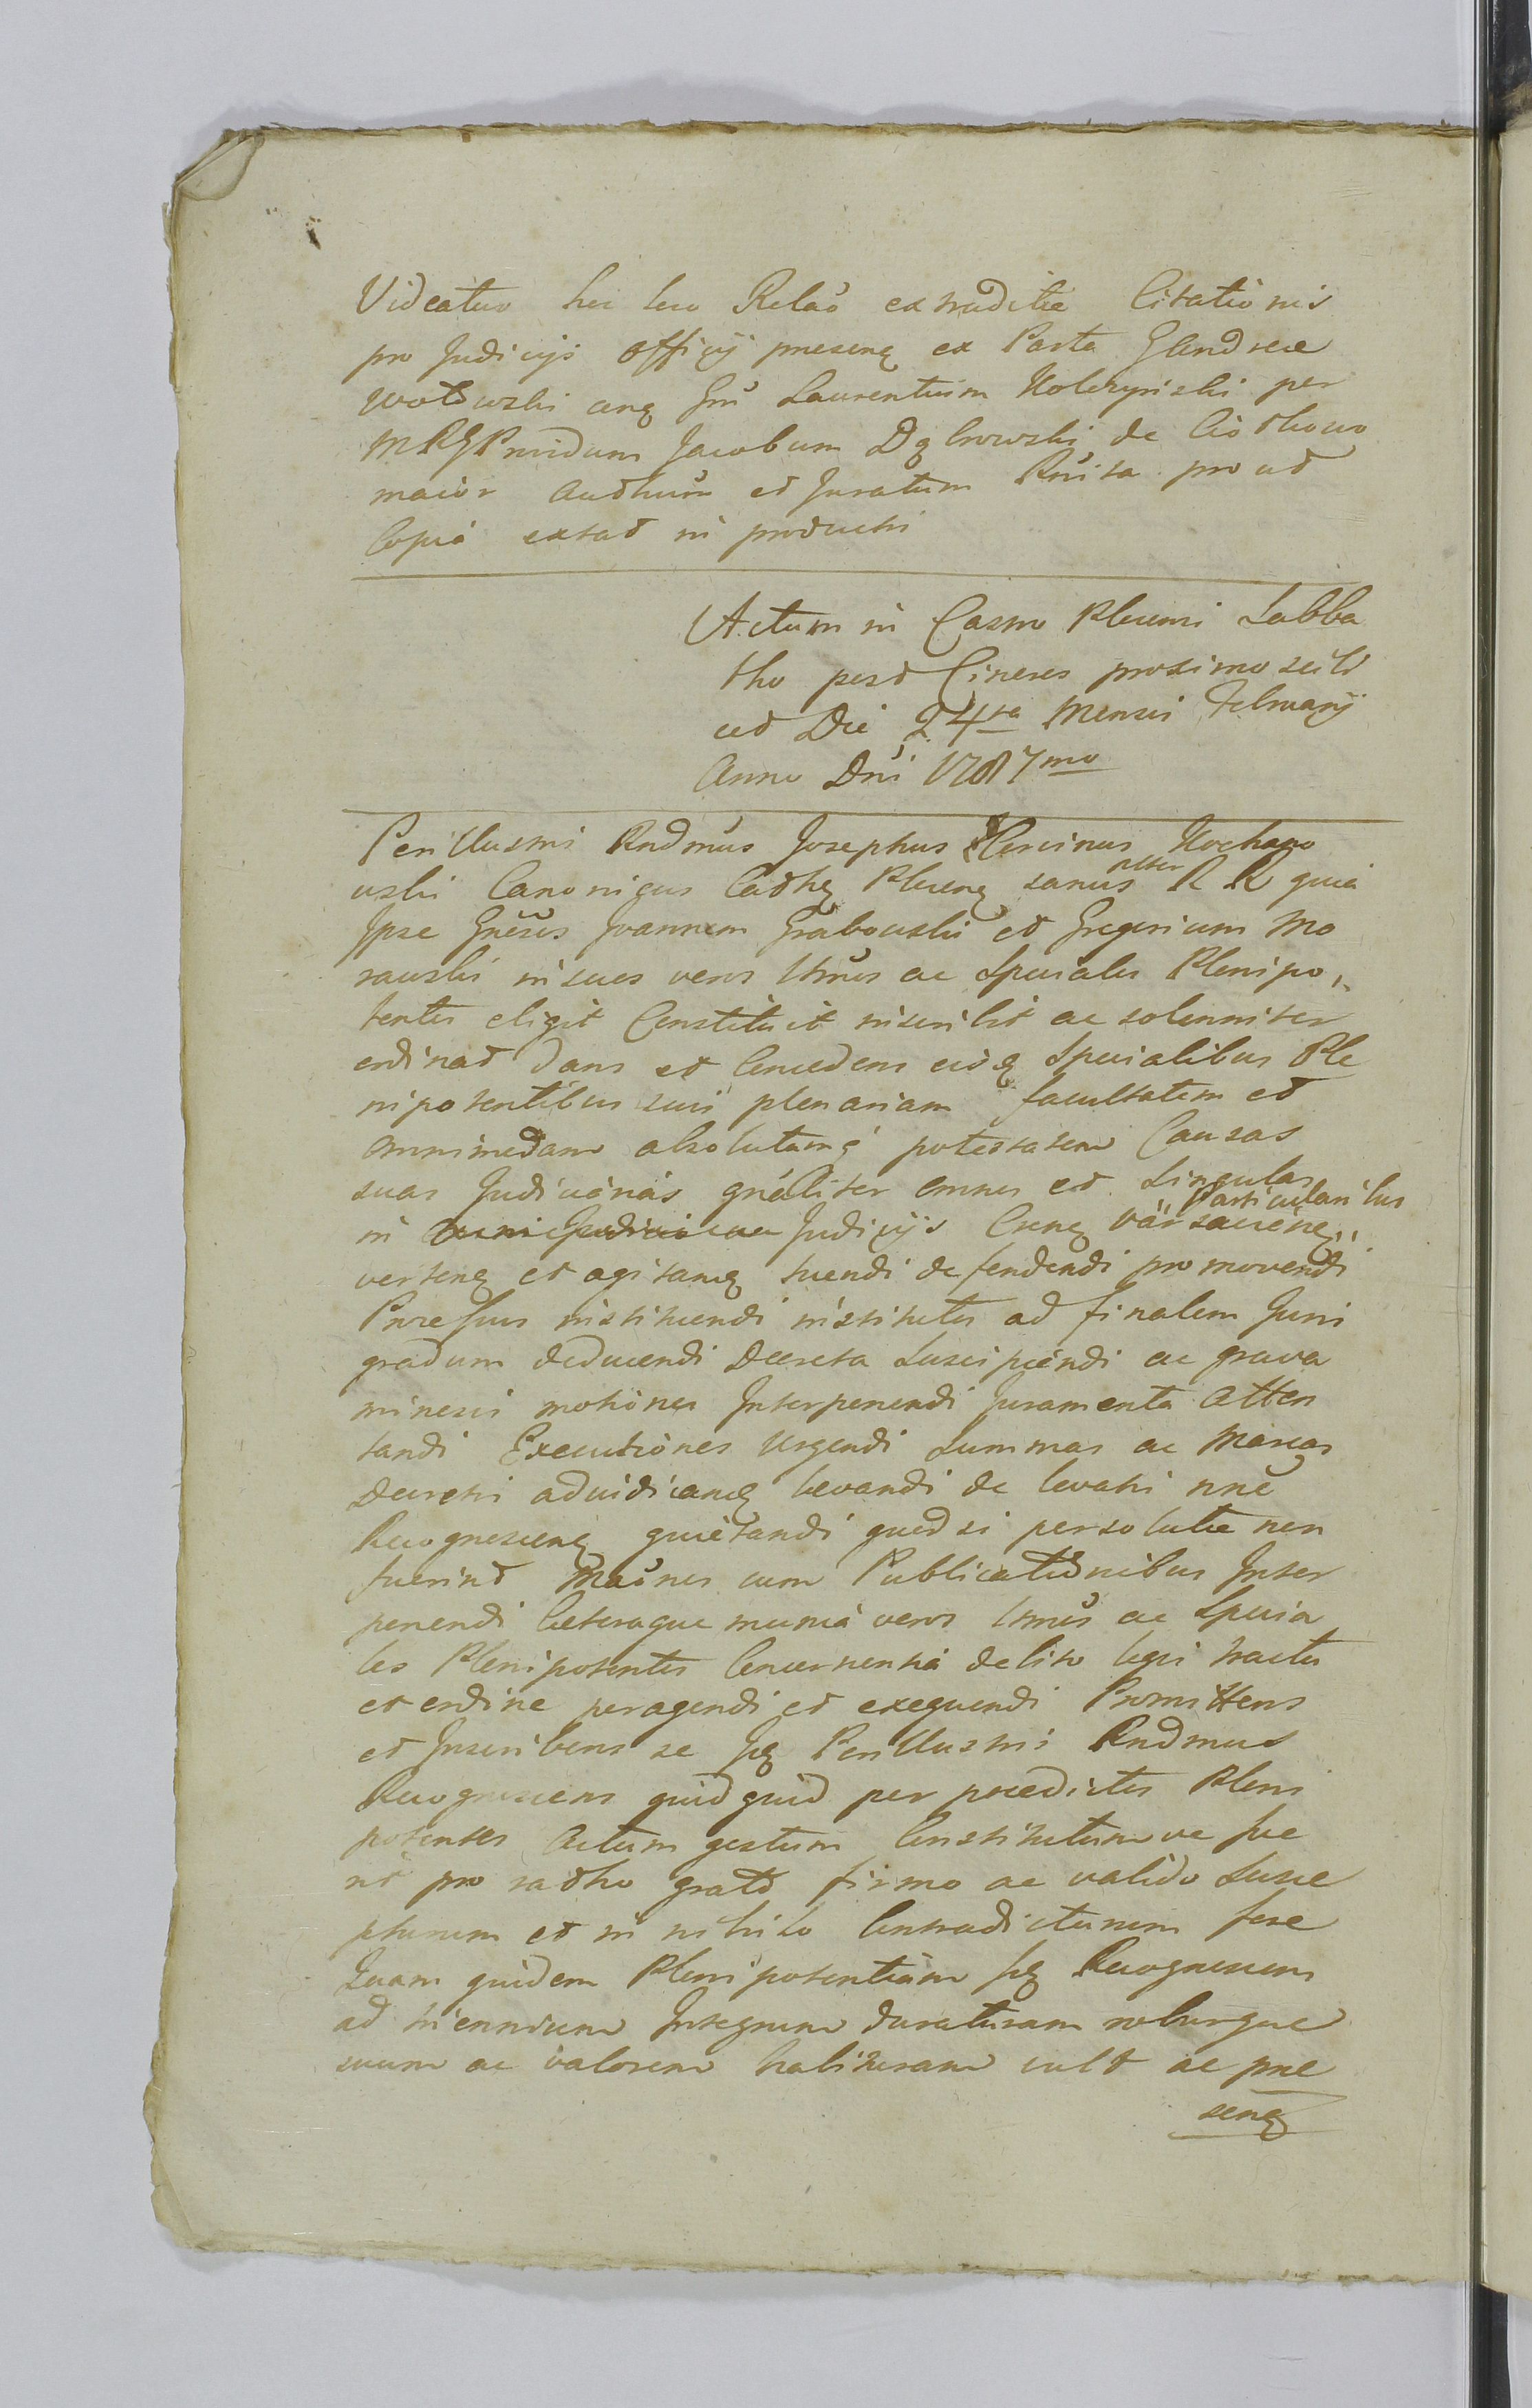 Videatur hic loco Relaŏ extraditae Citationis
pro Judicijs Officij presenę ex Parte Glendrece
Wołowski cenę Gnŭ Laurentium Kolczyński per
MRGProvidum Jacobum Dąbrowski de Ciołkowo
maior Authum et Juratum Rnisa pro ut
Copia extat in producti
Actum in Casmo Plocensi Sabba
tho post Cineres proximo scilt
ut Die 24ta Mensis Februarij
Anno Dni 1787mo
Perillusmi Rndmus Josephus Corvinus Kochano
wski Canonigus Cathę Plocenę sanus pter R R quia
Ipse Gnesus Joannem Grabowski et Gregorium Mo
rawski in suos veros ltmos ac Speciales Plenipo,,
tentes eligit Constituit inscribit ac solenniter
ordinat Dans et Concedens eisdę Specialibus Ple
nipotentibus suis plenariam facultatem et
omnimodam absolutamq́ potestatem Causas
suas Judiciarias gnáliter omnes et Singulas
in Judicijs Csenę vär Particularibus sauenę,,
versenę et agitanę tuendi defendendi promovendi
Processus instituendi institutos ad finalem Juris
gradum deducendi Decreta Suscipiendi ac grava
minosis motiones Interponendi Juramenta Attes
tandi Executiones Urgendi Summas ac Marcas
Decretis adiudicanę levandi de levatis nne
Recognoscenę quietandi quod si persolutae non
fuerint Maŏnes cum Publicationibus Inter
ponendi Ceteraque munia veros ltmos ac Specia
les Plenipotentes Concernentia debito legis tractu
et ordine peragendi et exequendi Promittens
et Inscribens se Ipę Perillusmi Rndmus
Recognoscens quidquid per praedictos Pleni
potentes Actum gestum Constitutumve fue
rit pro ratho grato firmo ac valido Susce
pturum et in nihilo Contradicturum fore
Quam quidem Plenipotentiam Ipę Recognoscens
ad triennium Integrum duraturam roburque
suum ac valorem habituram vult ac prae
senę